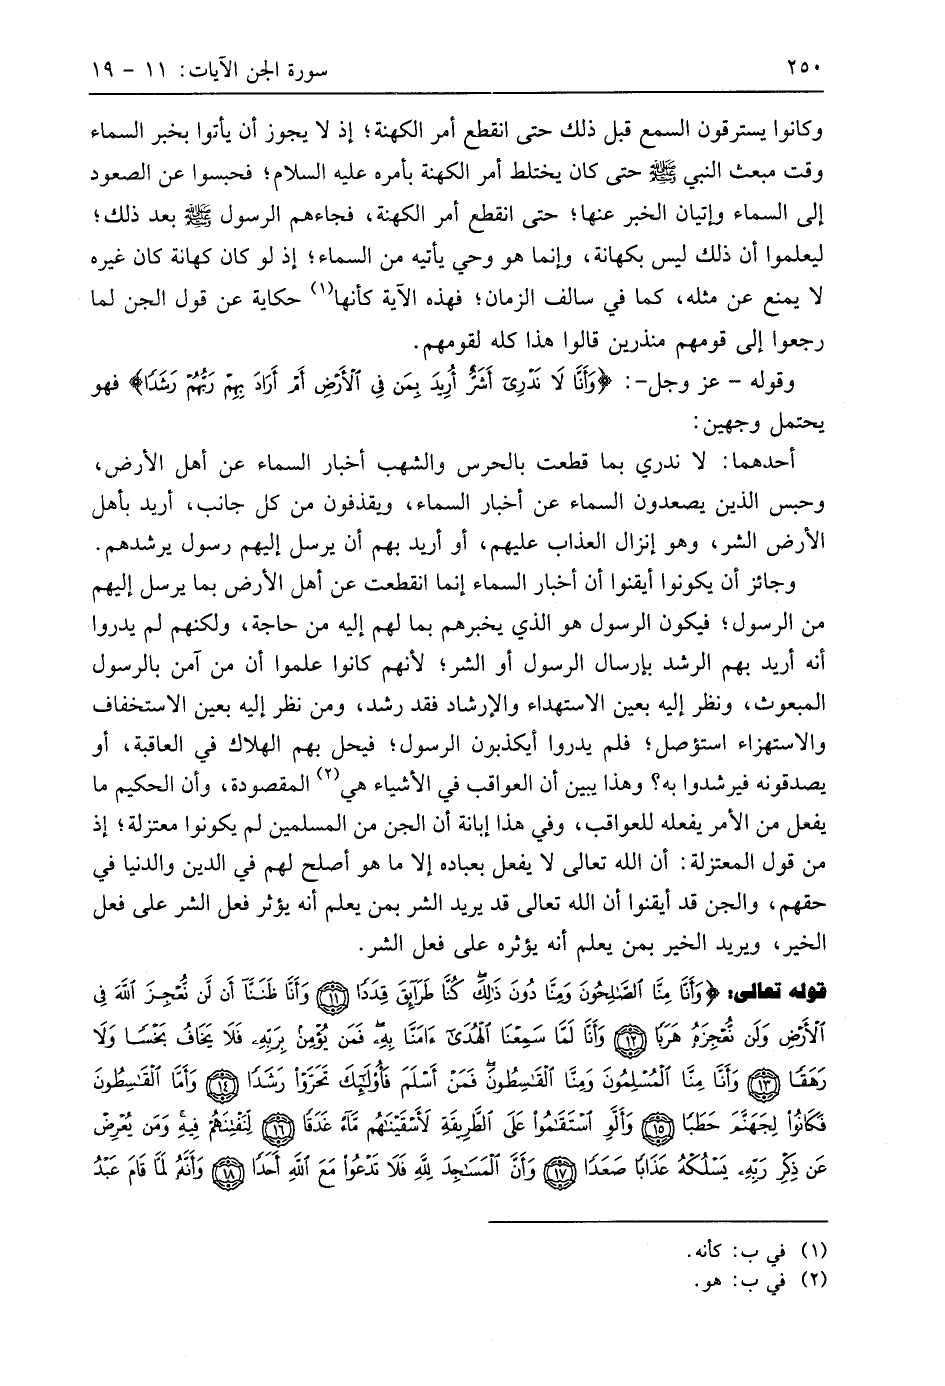 ٢٥٠ سورة الجن الآيات: ١١ - ١٩
وكانوا يسترقون السمع قبل ذلك حتى انقطع أمر الكهنة؛ إذ لا يجوز أن يأتوا بخبر السماء
وقت مبعث النبي ﷺ حتى كان يختلط أمر الكهنة بأمره عليه السلام؛ فحبسوا عن الصعود
إلى السماء وإتيان الخبر عنها؛ حتى انقطع أمر الكهنة، فجاءهم الرسول ﷺ بعد ذلك؛
ليعلموا أن ذلك ليس بكهانة، وإنما هو وحي يأتيه من السماء؛ إذ لو كان كهانة كان غيره
لا يمنع عن مثله، كما في سالف الزمان؛ فهذه الآية كأنها(١) حكاية عن قول الجن لما
رجعوا إلى قومهم منذرين قالوا هذا كله لقومهم.
وقوله - عز وجل-: ﴿وَأَنَّا لَا نَدْرِيٓ أَشَرٌّ أُرِيدَ بِمَن فِي ٱلْأَرْضِ أَمْ أَرَادَ بِهِمْ رَبُّهُمْ رَشَدًا﴾ فهو
يحتمل وجهين:
أحدهما: لا ندري بما قطعت بالحرس والشهب أخبار السماء عن أهل الأرض،
وحبس الذين يصعدون السماء عن أخبار السماء، ويقذفون من كل جانب، أريد بأهل
الأرض الشر، وهو إنزال العذاب عليهم، أو أريد بهم أن يرسل إليهم رسول يرشدهم.
وجائز أن يكونوا أيقنوا أن أخبار السماء إنما انقطعت عن أهل الأرض بما يرسل إليهم
من الرسول؛ فيكون الرسول هو الذي يخبرهم بما لهم إليه من حاجة، ولكنهم لم يدروا
أنه أريد بهم الرشد بإرسال الرسول أو الشر؛ لأنهم كانوا علموا أن من آمن بالرسول
المبعوث، ونظر إليه بعين الاستهداء والإرشاد فقد رشد، ومن نظر إليه بعين الاستخفاف
والاستهزاء استؤصل؛ فلم يدروا أيكذبون الرسول؛ فيحل بهم الهلاك في العاقبة، أو
يصدقونه فيرشدوا به؟ وهذا يبين أن العواقب في الأشياء هي(٢) المقصودة، وأن الحكيم ما
يفعل من الأمر يفعله للعواقب، وفي هذا إبانة أن الجن من المسلمين لم يكونوا معتزلة؛ إذ
من قول المعتزلة: أن الله تعالى لا يفعل بعباده إلا ما هو أصلح لهم في الدين والدنيا في
حقهم، والجن قد أيقنوا أن الله تعالى قد يريد الشر بمن يعلم أنه يؤثر فعل الشر على فعل
الخير، ويريد الخير بمن يعلم أنه يؤثره على فعل الشر.
قوله تعالى: ﴿وَأَنَّا مِنَّا ٱلصَّٰلِحُونَ وَمِنَّا دُونَ ذَٰلِكَۖ كُنَّا طَرَآئِقَ قِدَدًا ﴿١١﴾ وَأَنَّا ظَنَنَّآ أَن لَّن نُّعْجِزَ ٱللَّهَ فِي
ٱلْأَرْضِ وَلَن نُّعْجِزَهُۥ هَرَبًا ﴿١٢﴾ وَأَنَّا لَمَّا سَمِعْنَا ٱلْهُدَىٰٓ ءَامَنَّا بِهِۦۖ فَمَن يُؤْمِنۢ بِرَبِّهِۦ فَلَا يَخَافُ بَخْسًا وَلَا
رَهَقًا ﴿١٣﴾ وَأَنَّا مِنَّا ٱلْمُسْلِمُونَ وَمِنَّا ٱلْقَٰسِطُونَۖ فَمَنْ أَسْلَمَ فَأُو۟لَٰٓئِكَ تَحَرَّوْا۟ رَشَدًا ﴿١٤﴾ وَأَمَّا ٱلْقَٰسِطُونَ
فَكَانُوا۟ لِجَهَنَّمَ حَطَبًا ﴿١٥﴾ وَأَلَّوِ ٱسْتَقَٰمُوا۟ عَلَى ٱلطَّرِيقَةِ لَأَسْقَيْنَٰهُم مَّآءً غَدَقًا ﴿١٦﴾ لِّنَفْتِنَهُمْ فِيهِۚ وَمَن يُعْرِضْ
عَن ذِكْرِ رَبِّهِۦ يَسْلُكْهُ عَذَابًا صَعَدًا ﴿١٧﴾ وَأَنَّ ٱلْمَسَٰجِدَ لِلَّهِ فَلَا تَدْعُوا۟ مَعَ ٱللَّهِ أَحَدًا ﴿١٨﴾ وَأَنَّهُۥ لَمَّا قَامَ عَبْدُ
(١) في ب: كأنه.
(٢) في ب: هو.